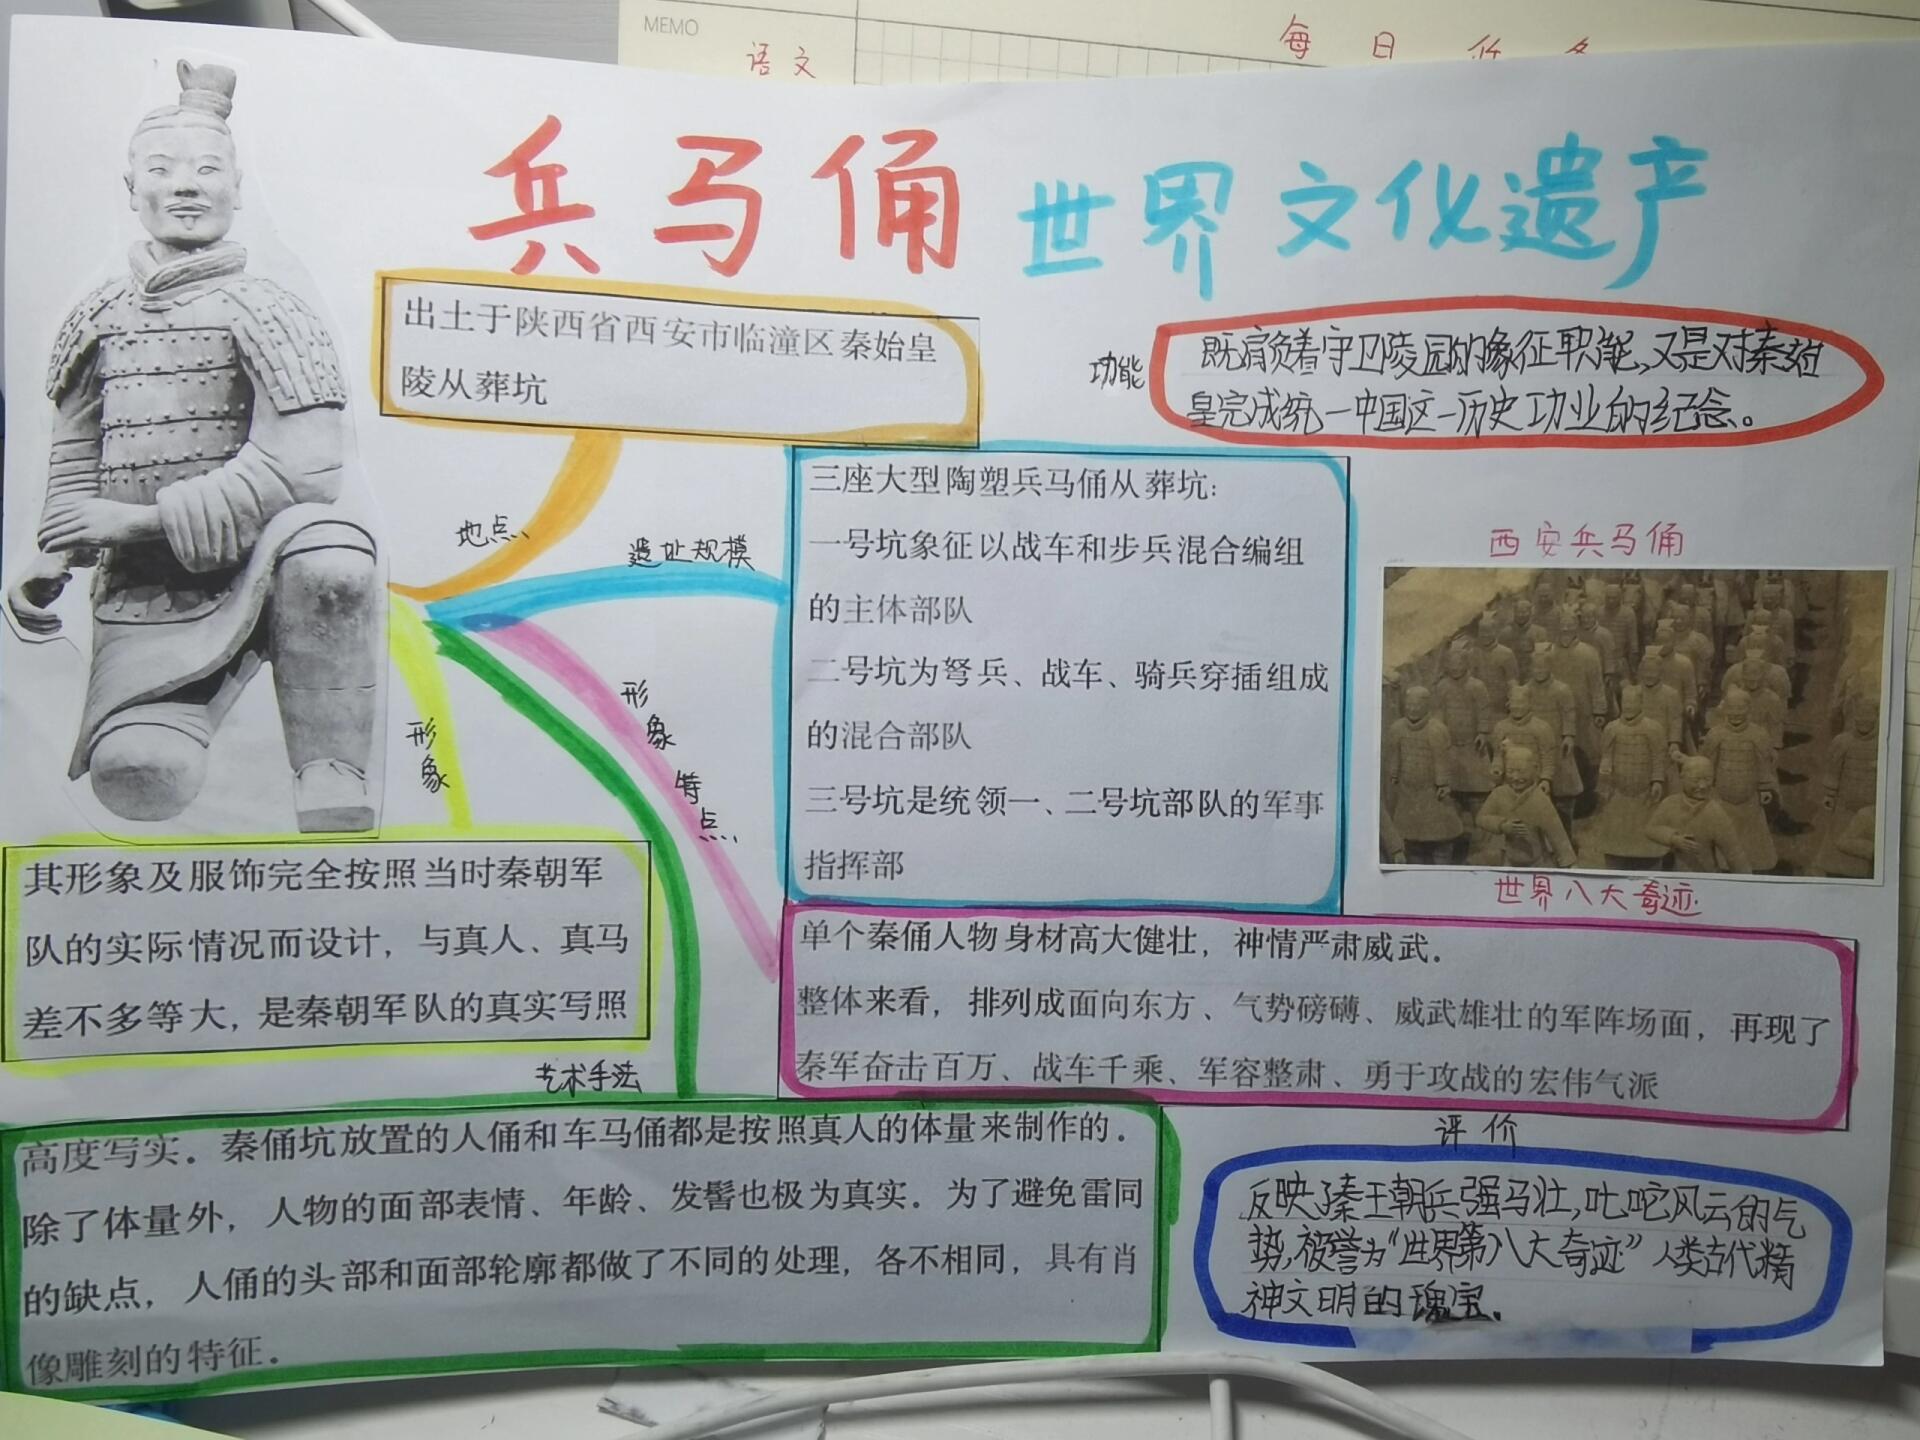 MEMO
语文
每日任务
兵马俑 世界文化遗产
出土于陕西省西安市临潼区秦始皇
陵从葬坑
功能
既肩负着守卫陵园的象征职能,又是对秦始
皇完成统一中国这一历史功业的纪念。
地点
遗址规模
三座大型陶塑兵马俑从葬坑:
一号坑象征以战车和步兵混合编组
的主体部队
二号坑为弩兵、战车、骑兵穿插组成
的混合部队
三号坑是统领一、二号坑部队的军事
指挥部
西安兵马俑
世界八大奇迹
形象
形象特点
其形象及服饰完全按照当时秦朝军
队的实际情况而设计,与真人、真马
差不多等大,是秦朝军队的真实写照
单个秦俑人物身材高大健壮,神情严肃威武.
整体来看,排列成面向东方、气势磅礴、威武雄壮的军阵场面,再现了
秦军奋击百万、战车千乘、军容整肃、勇于攻战的宏伟气派
艺术手法
高度写实.秦俑坑放置的人俑和车马俑都是按照真人的体量来制作的.
除了体量外,人物的面部表情、年龄、发髻也极为真实.为了避免雷同
的缺点,人俑的头部和面部轮廓都做了不同的处理,各不相同,具有肖
像雕刻的特征.
评价
反映了秦王朝兵强马壮,叱咤风云的气
势,被誉为“世界第八大奇迹”人类古代精
神文明的瑰宝.